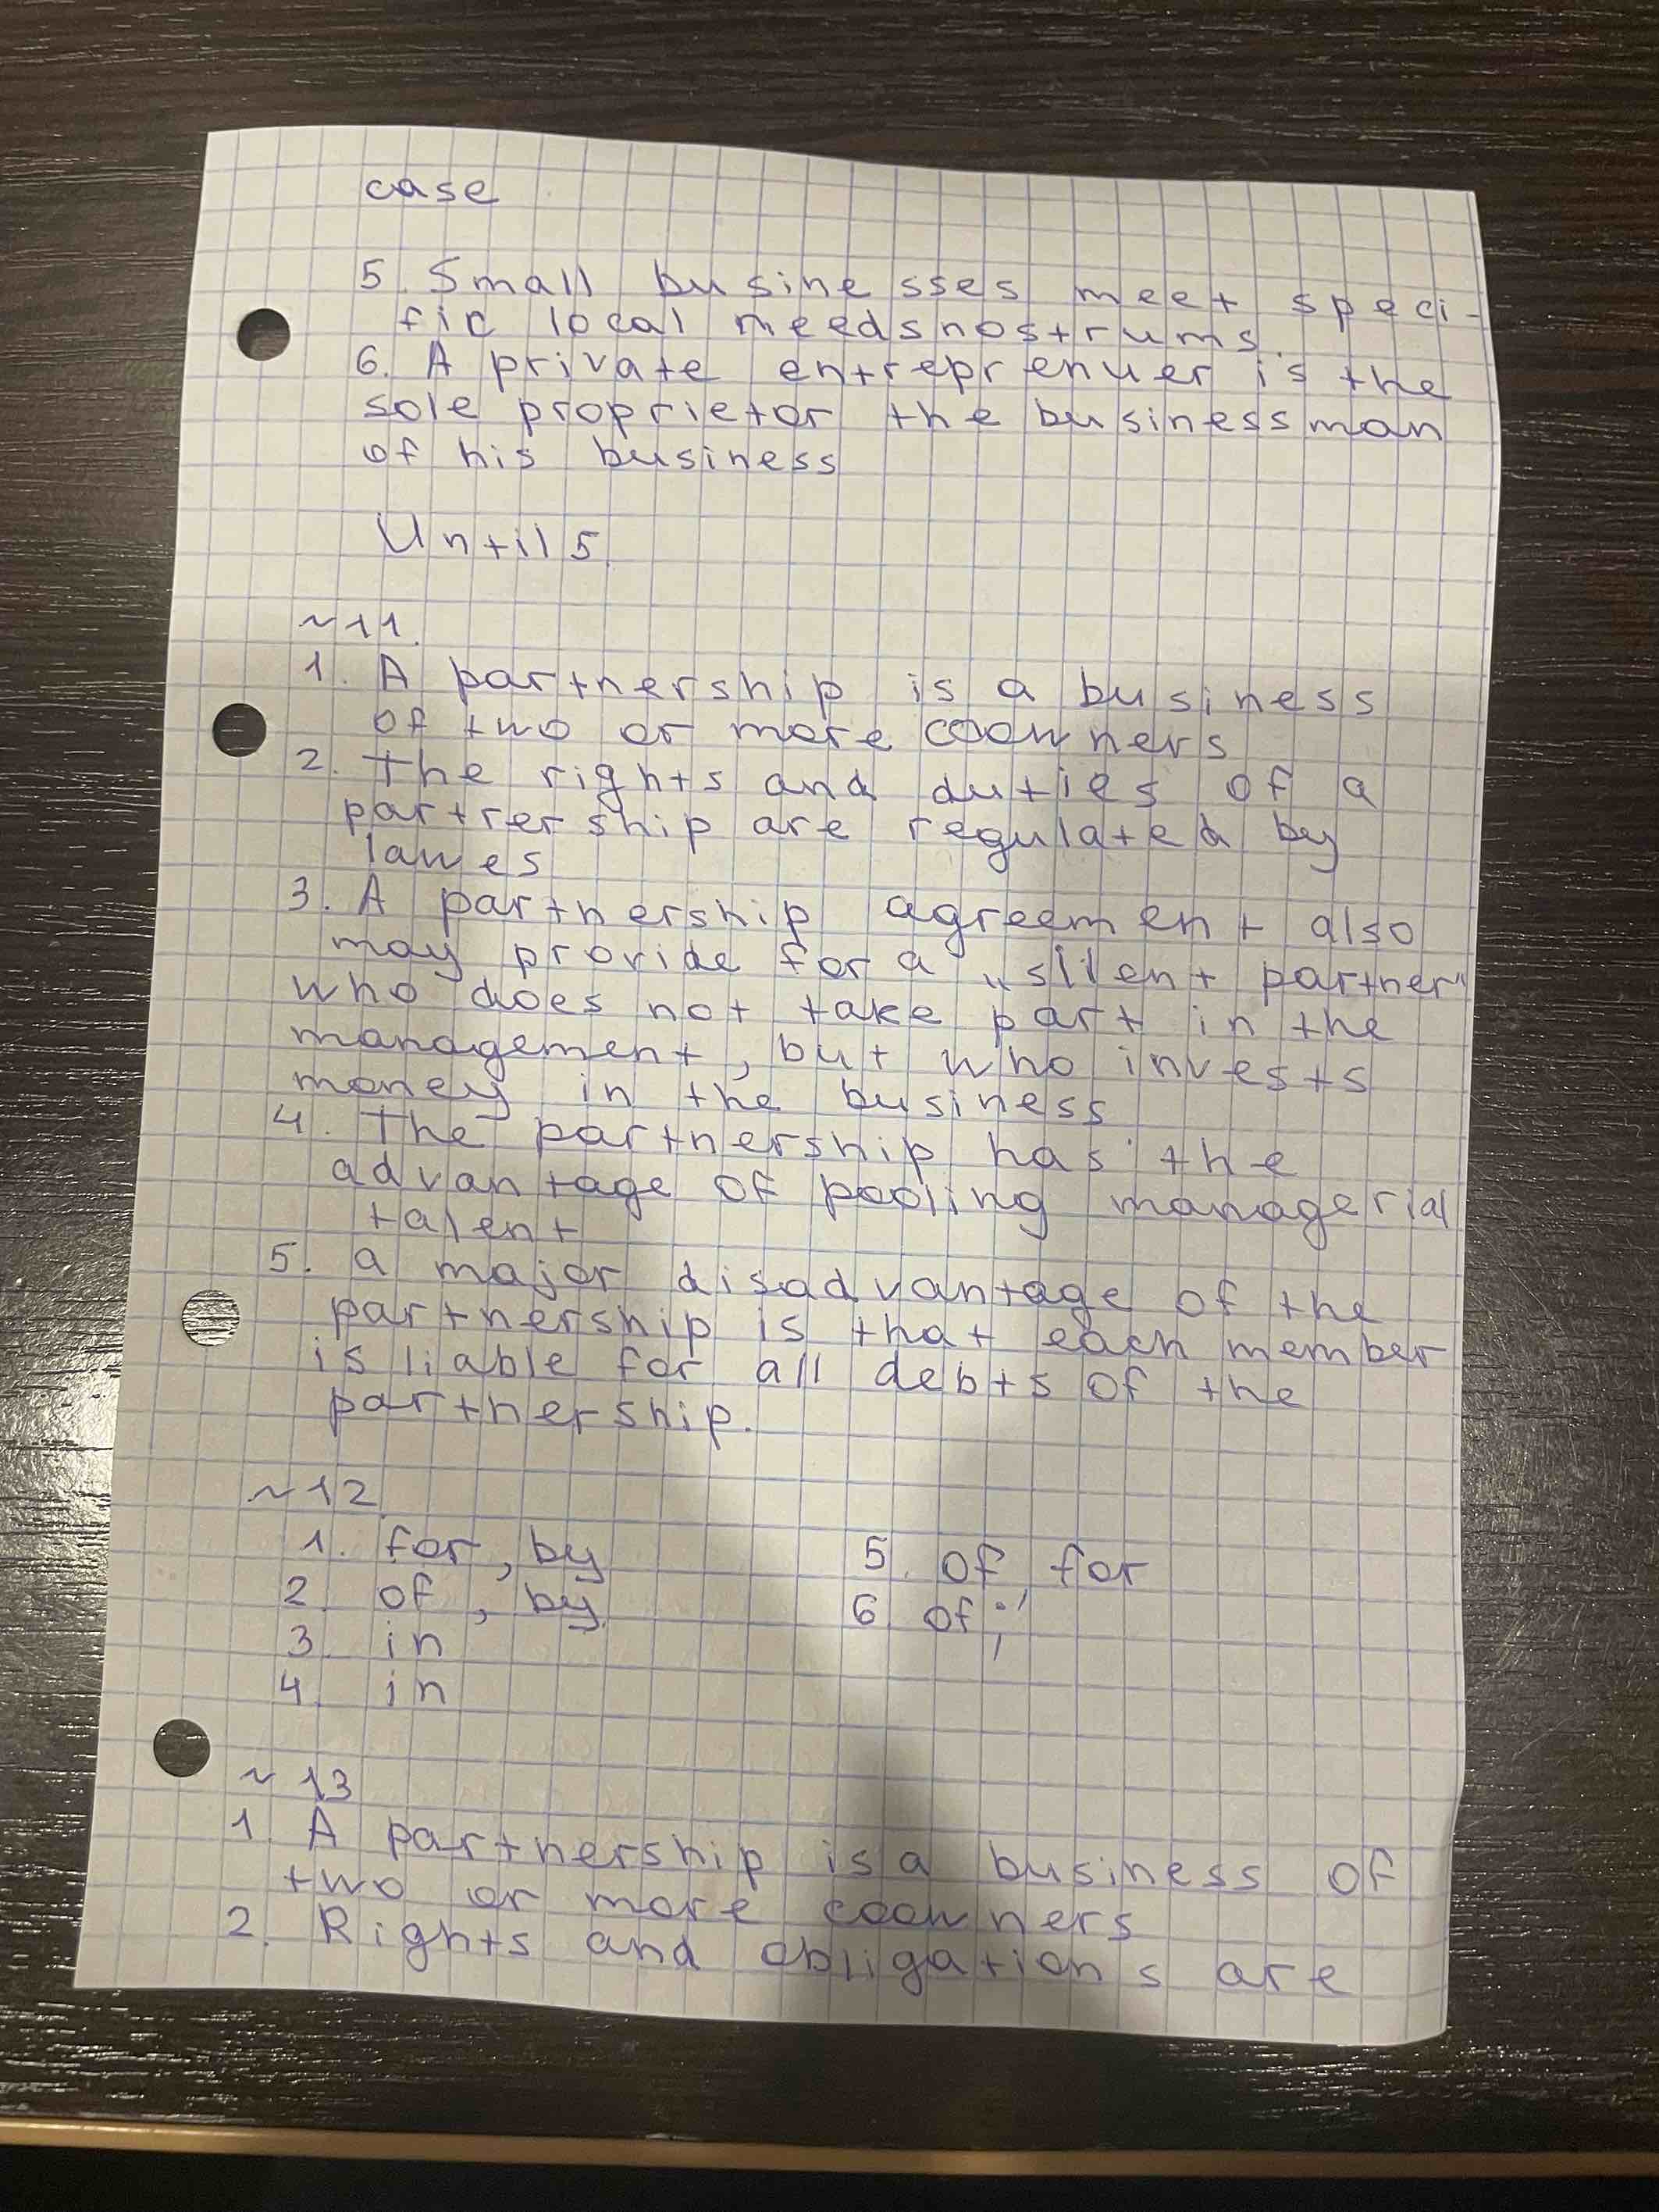 case
5. Small businesses meet speci-
fic local needs nostrums.
6. A private entreprenuer is the
sole proprietor the businessman
of his business
Until 5.
~11.
1. A partnership is a business
of two or more coowners
2. The rights and duties of a
partrership are regulated by
lawes
3. A partnership agreement also
may provide for a „silent partner"
who does not take part in the
management, but who invests
money in the business
4. The partnership has the
advantage of pooling managerial
talent
5. a major disadvantage of the
partnership is that each member
is liable for all debts of the
partnership.
~12.
1. for, by
2. of, by
3. in
4. in
5. of, for
6. of;
~13
1. A partnership is a business of
two or more coowners
2. Rights and obligations are